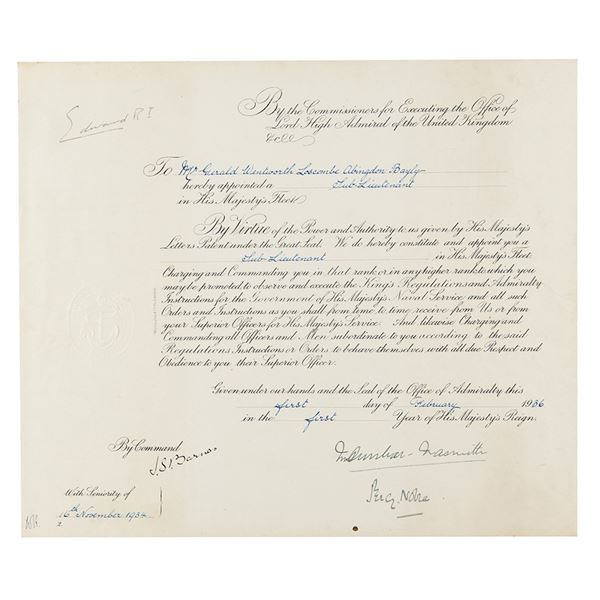 Edward R I
By the Commissioners for Executing the Office of
Lord High Admiral of the United Kingdom
&c &c
To Mr Gerald Wentworth Loscombe Abingdon Bayly
hereby appointed a Sub-Lieutenant
in His Majesty's Fleet
By Virtue of the Power and Authority to us given by His Majesty's
Letters Patent under the Great Seal. We do hereby constitute and appoint you a
Sub-Lieutenant in His Majesty's Fleet
Charging and Commanding you in that rank or in any higher rank to which you
may be promoted to observe and execute the King's Regulations and Admiralty
Instructions for the Government of His Majesty's Naval Service and all such
Orders and Instructions as you shall from time to time receive from Us or from
your Superior Officers for His Majesty's Service. And likewise Charging and
Commanding all Officers and Men subordinate to you according to the said
Regulations Instructions or Orders to behave themselves with all due Respect and
Obedience to you, their Superior Officer.
Given under our hands and the Seal of the Office of Admiralty this
first day of February 1936
in the first Year of His Majesty's Reign.
By Command
J.S. Barnes
M Dunbar-Nasmith
Percy Noble
With Seniority of
16th November 1934
2.